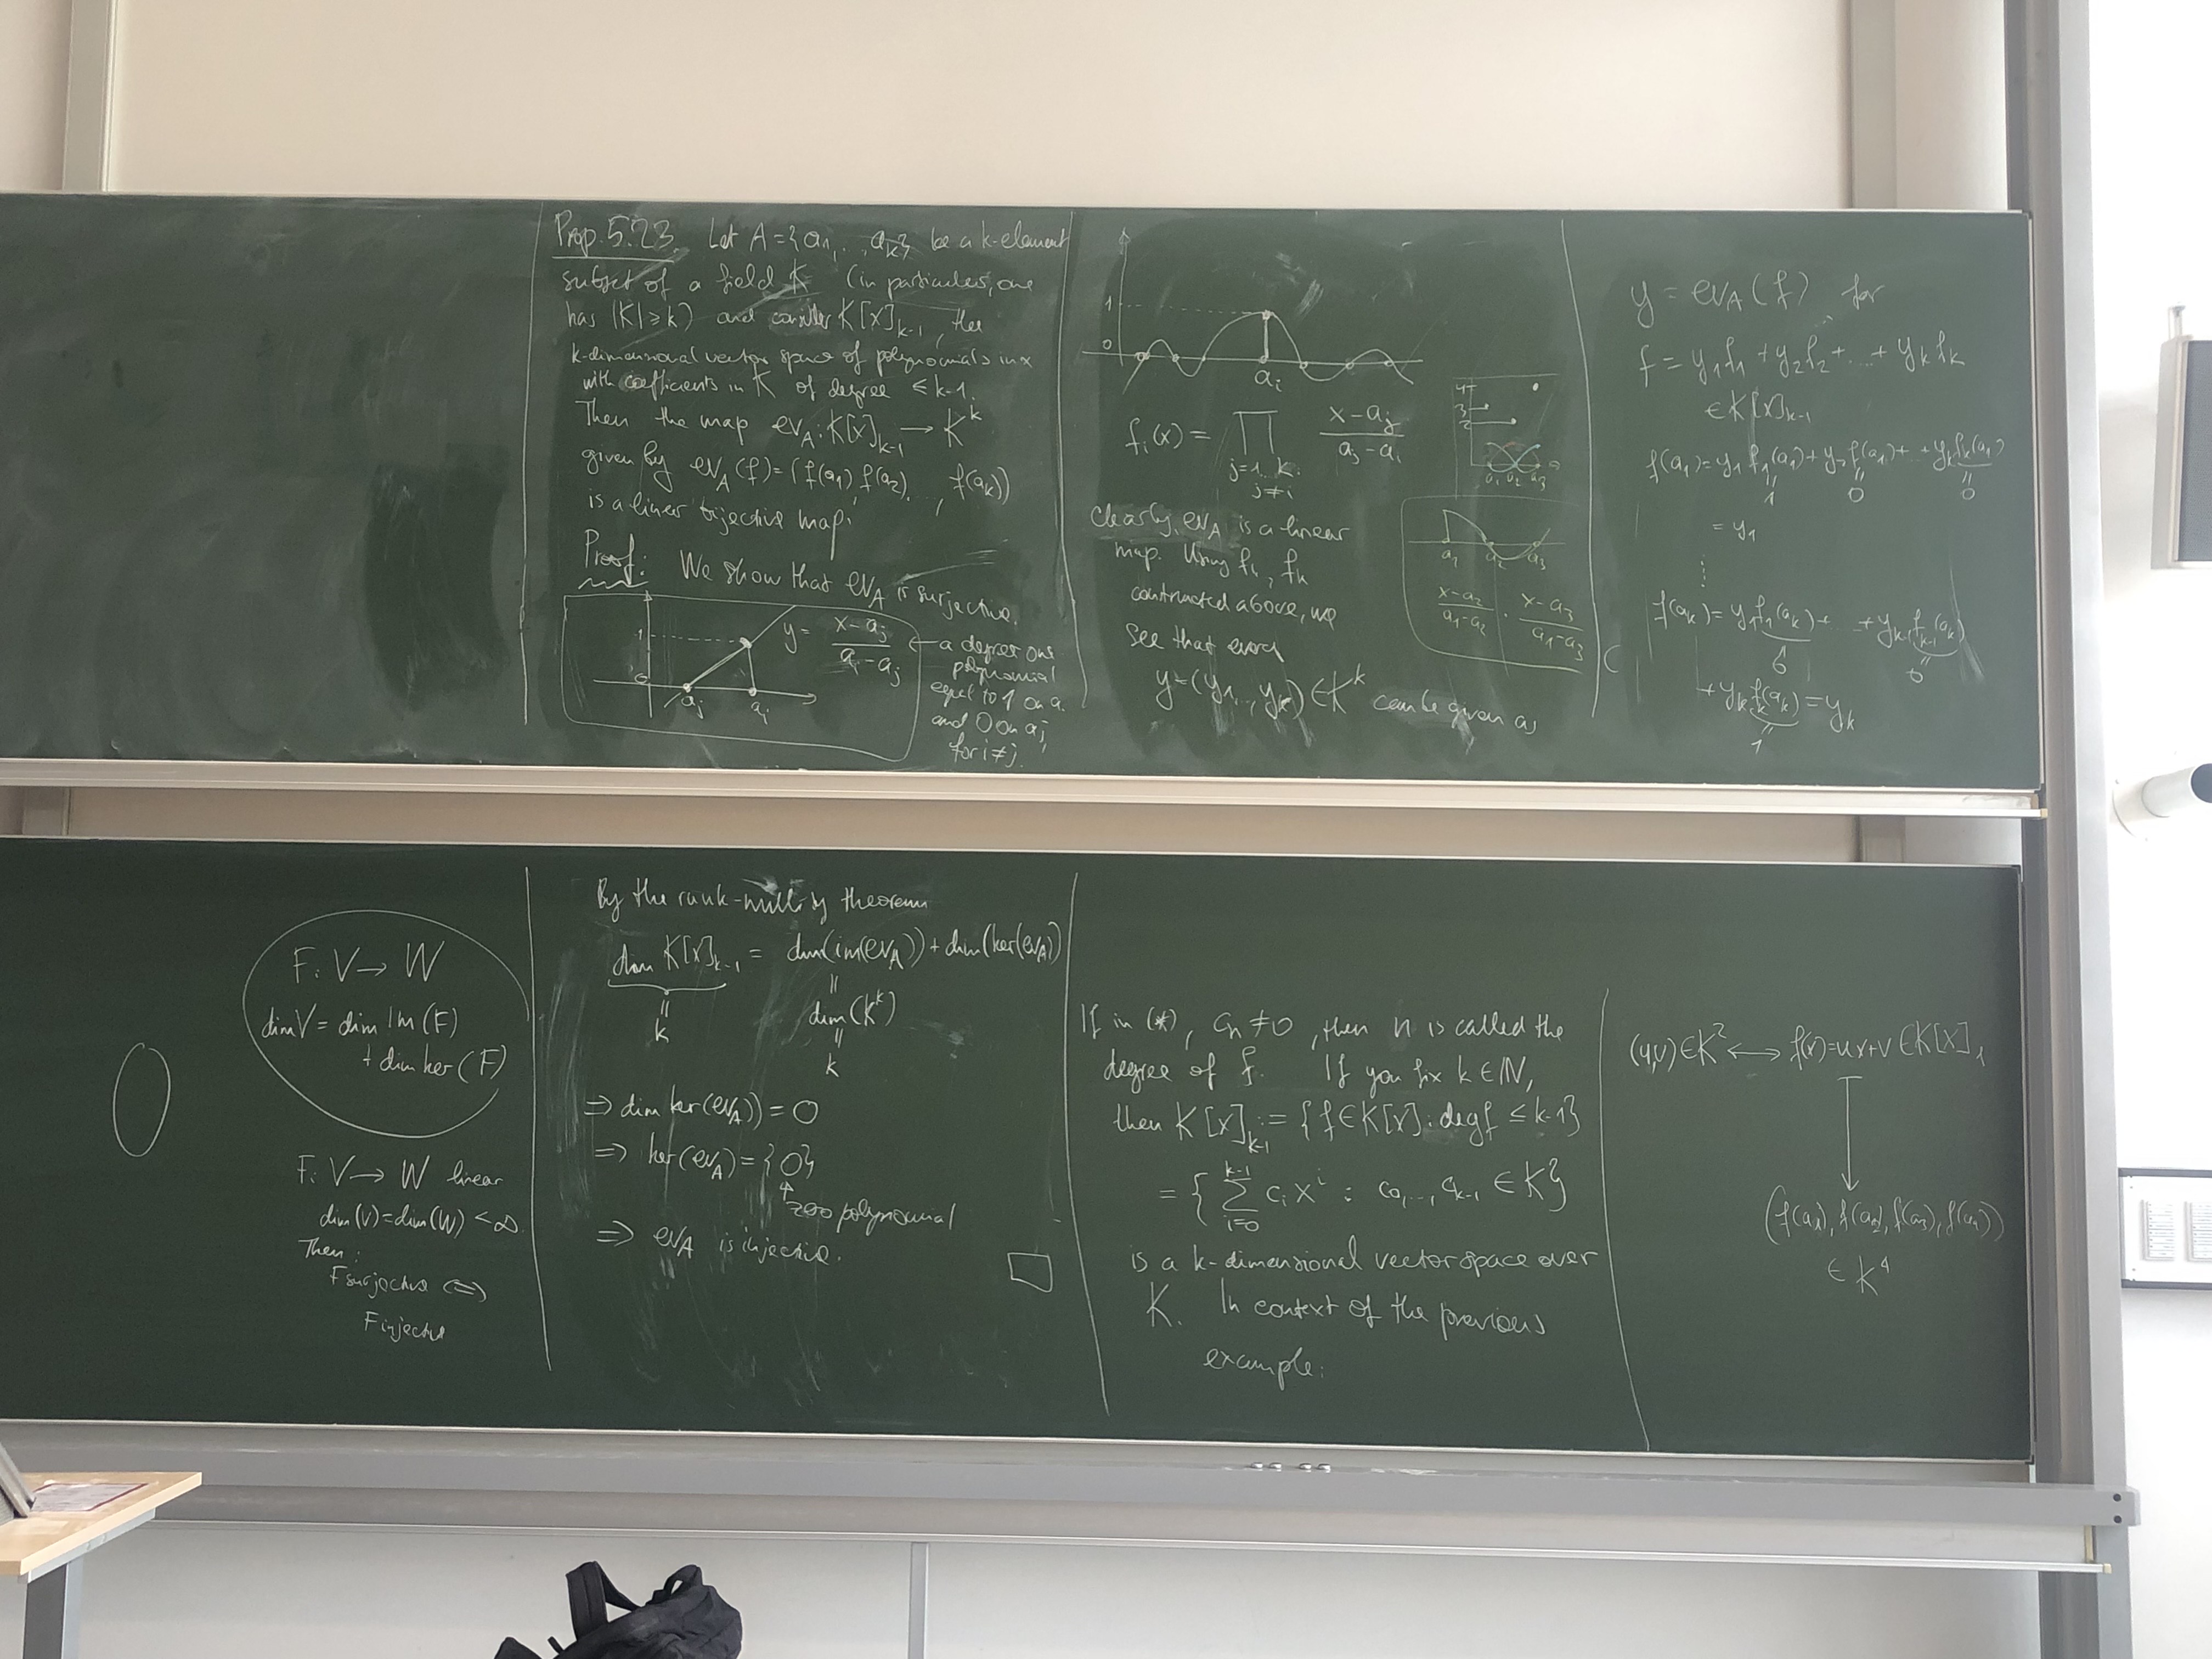 Prop. 5.23. Let A = {a₁, .., aₖ} be a k-element
subset of a field K (in particular, one
has |K| ≥ k) and consider K[x]ₖ₋₁, the
k-dimensional vector space of polynomials in x
with coefficients in K of degree ≤ k-1.
Then the map ev_A : K[x]ₖ₋₁ → Kᵏ
given by ev_A(f) = (f(a₁), f(a₂), ..., f(aₖ))
is a linear bijective map.
Proof: We show that ev_A is surjective.
1
0
a_j
a_i
y = (x-a_j)/(a_i-a_j)
← a degree one
polynomial
equal to 1 on a_i
and 0 on a_j
for i≠j.
1
0
a_i
f_i(x) = ∏ (x-a_j)/(a_j-a_i)
j=1..k
j≠i
4
3
2
a₁ a₂ a₃
Clearly, ev_A is a linear
map. Using f₁, .., fₖ
constructed above, we
see that every
y = (y₁, .., yₖ) ∈ Kᵏ can be given as
a₁ a₂ a₃
(x-a₂)/(a₁-a₂) · (x-a₃)/(a₁-a₃)
y = ev_A(f) for
f = y₁f₁ + y₂f₂ + ... + yₖfₖ
∈ K[x]ₖ₋₁
f(a₁) = y₁f₁(a₁) + y₂f₂(a₁) + .. + yₖfₖ(a₁)
= 1 = 0 = 0
= y₁
⋮
f(aₖ) = y₁f₁(aₖ) + ... + yₖ₋₁fₖ₋₁(aₖ)
0 = 0
+ yₖfₖ(aₖ) = yₖ
= 1
F: V → W
dim V = dim Im(F)
+ dim ker(F)
F: V → W linear
dim(V) = dim(W) < ∞.
Then:
F surjective ⇔
F injective
By the rank-nullity theorem
dim K[x]ₖ₋₁ = dim(im(ev_A)) + dim(ker(ev_A))
= k
= dim(Kᵏ)
= k
⇒ dim ker(ev_A)) = 0
⇒ ker(ev_A) = {0}
↑ zero polynomial
⇒ ev_A is injective. □
If in (*), cₙ ≠ 0, then n is called the
degree of f. If you fix k ∈ ℕ,
then K[x]ₖ₋₁ := {f ∈ K[x] : deg f ≤ k-1}
= { ∑ᵢ₌₀ᵏ⁻¹ cᵢxⁱ : c₀, .., cₖ₋₁ ∈ K}
is a k-dimensional vector space over
K. In context of the previous
example:
(u,v) ∈ K² ↔ f(x) = ux+v ∈ K[x]₁
(f(a₁), f(a₂), f(a₃), f(a₄))
∈ K⁴